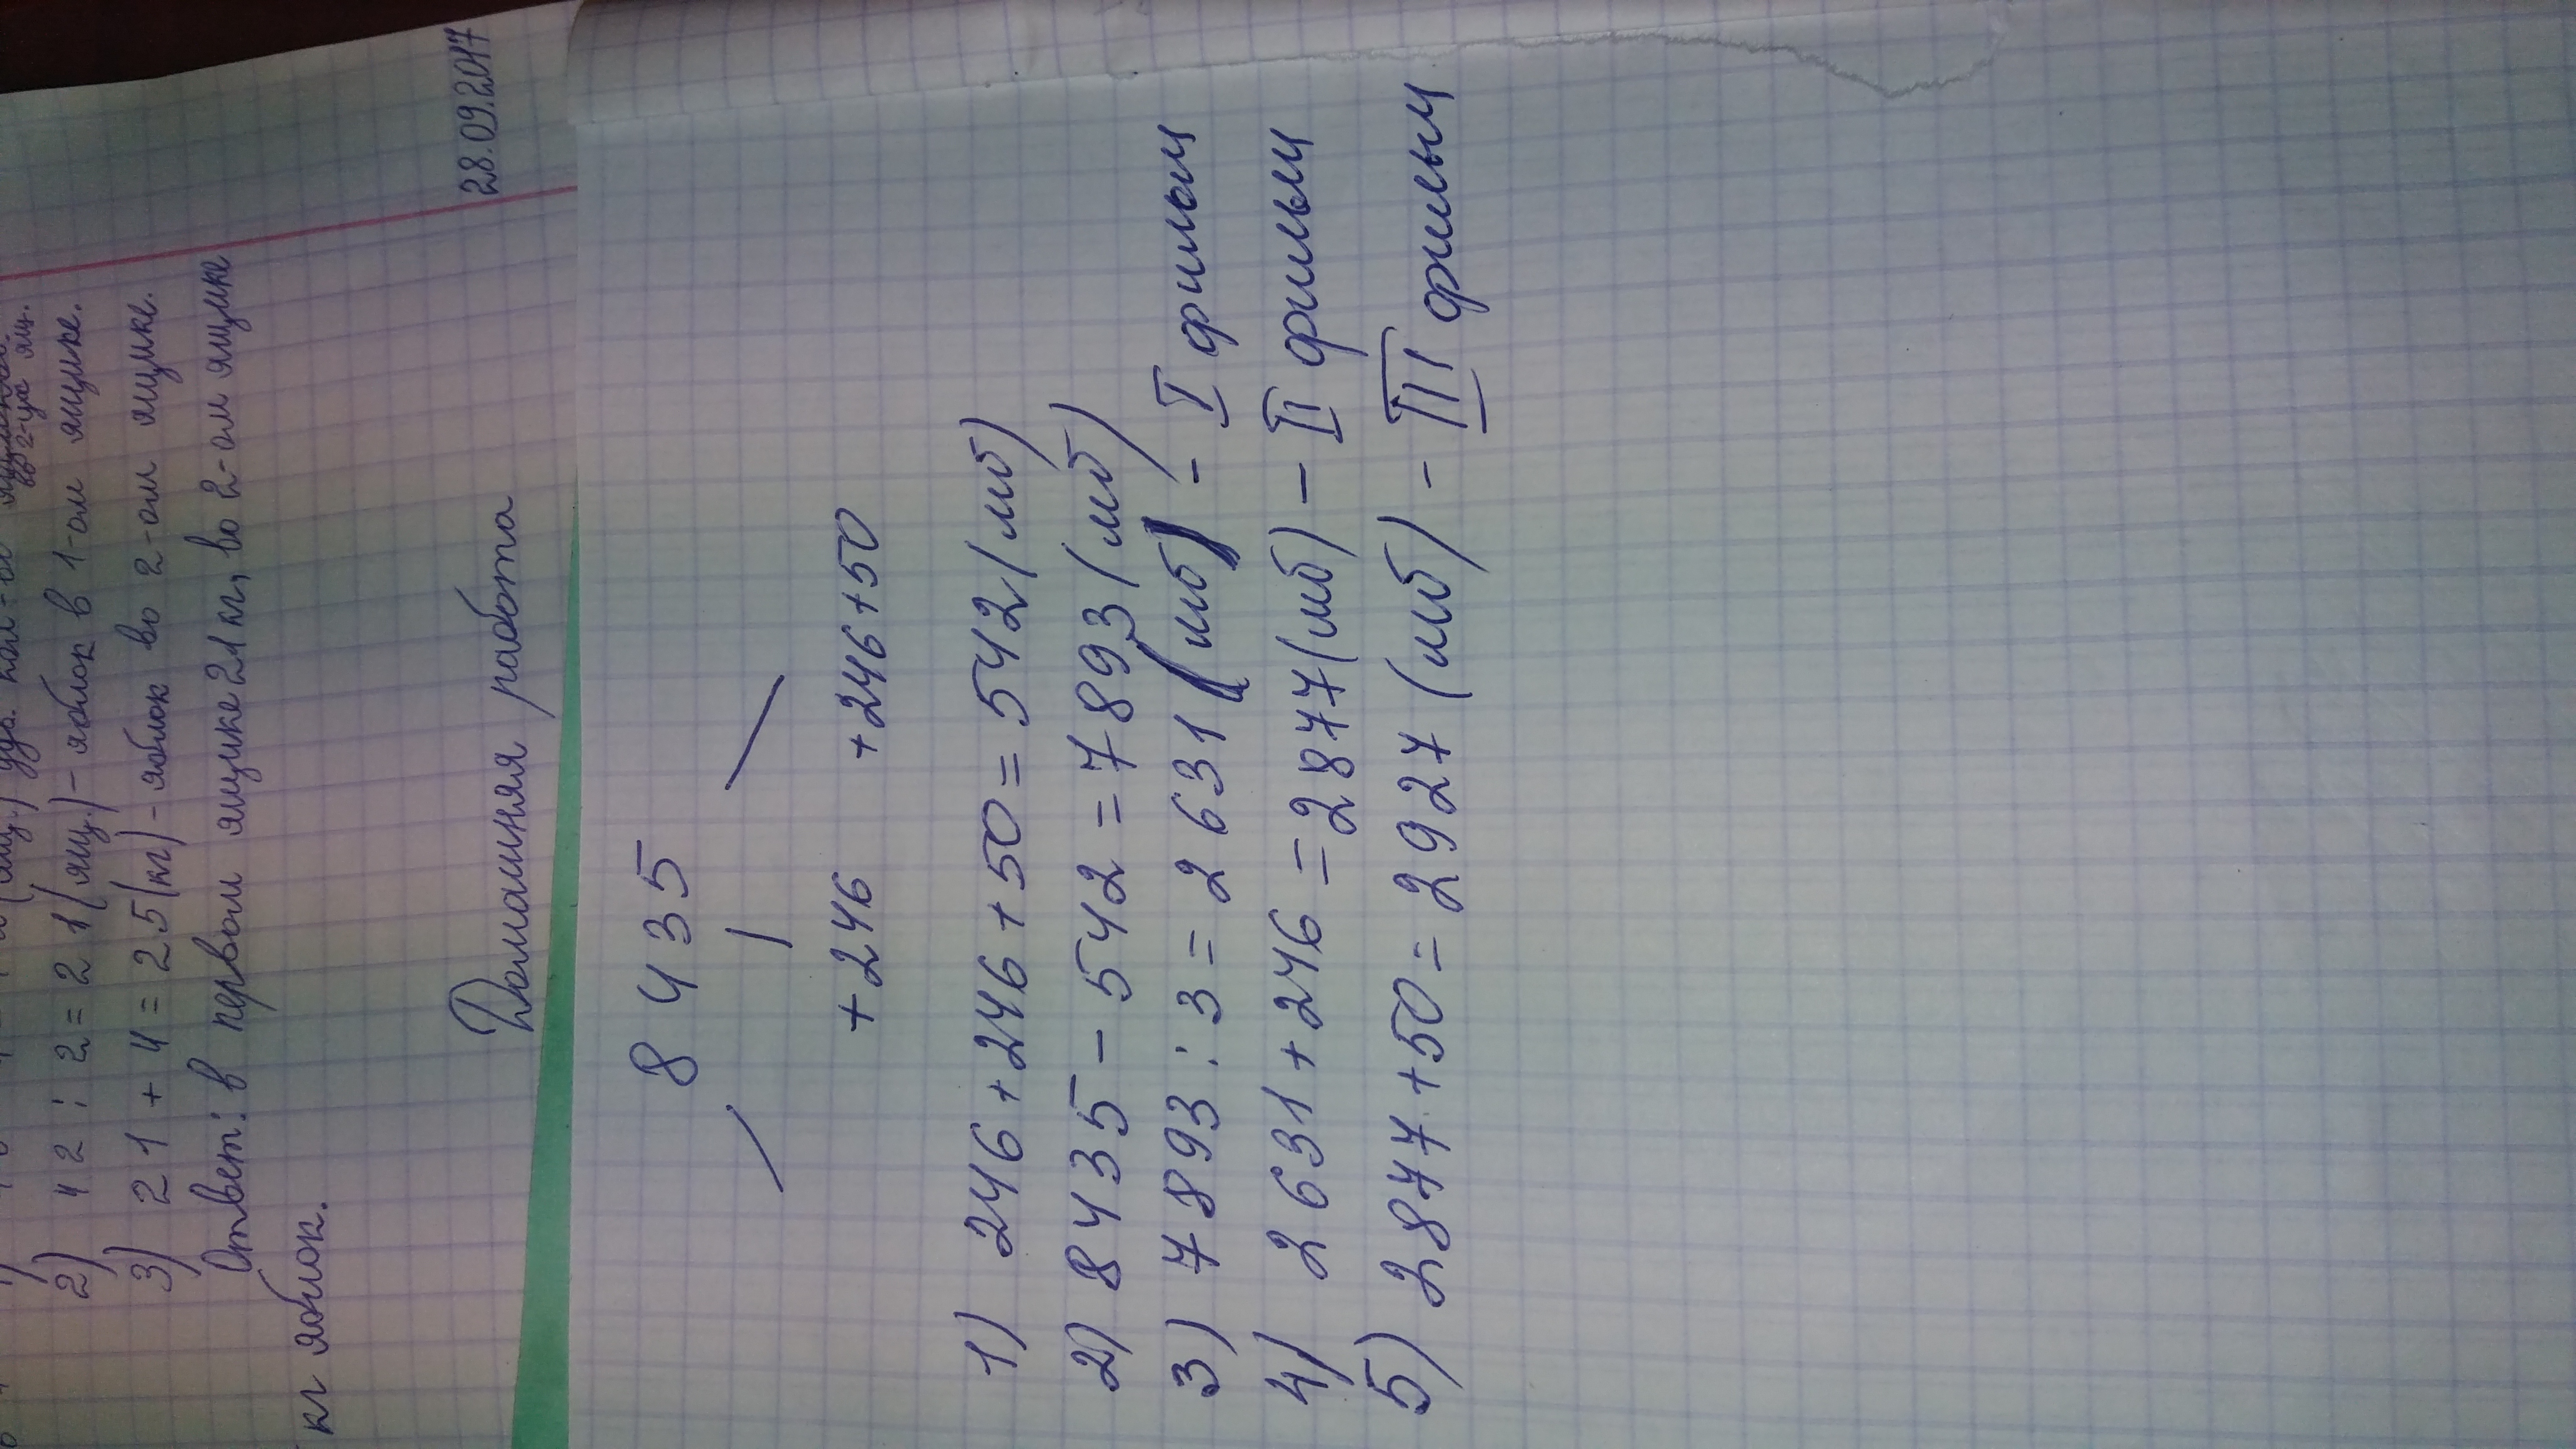 2) 42 : 2 = 21 (ящ.) - яблок в 1-ом ящике.
3) 21 + 4 = 25 (кг) - яблок во 2-ом ящике.
Ответ: в первом ящике 21 кг, во 2-ом ящике
кг яблок.
28.09.2017
Домашняя работа
8435
+246 +246+50
1) 246+246+50=542 (мб)
2) 8435-542=7893 (мб)
3) 7893:3=2631 (мб) - I фильм
4) 2631+246=2877 (мб) - II фильм
5) 2877+50=2927 (мб) - III фильм